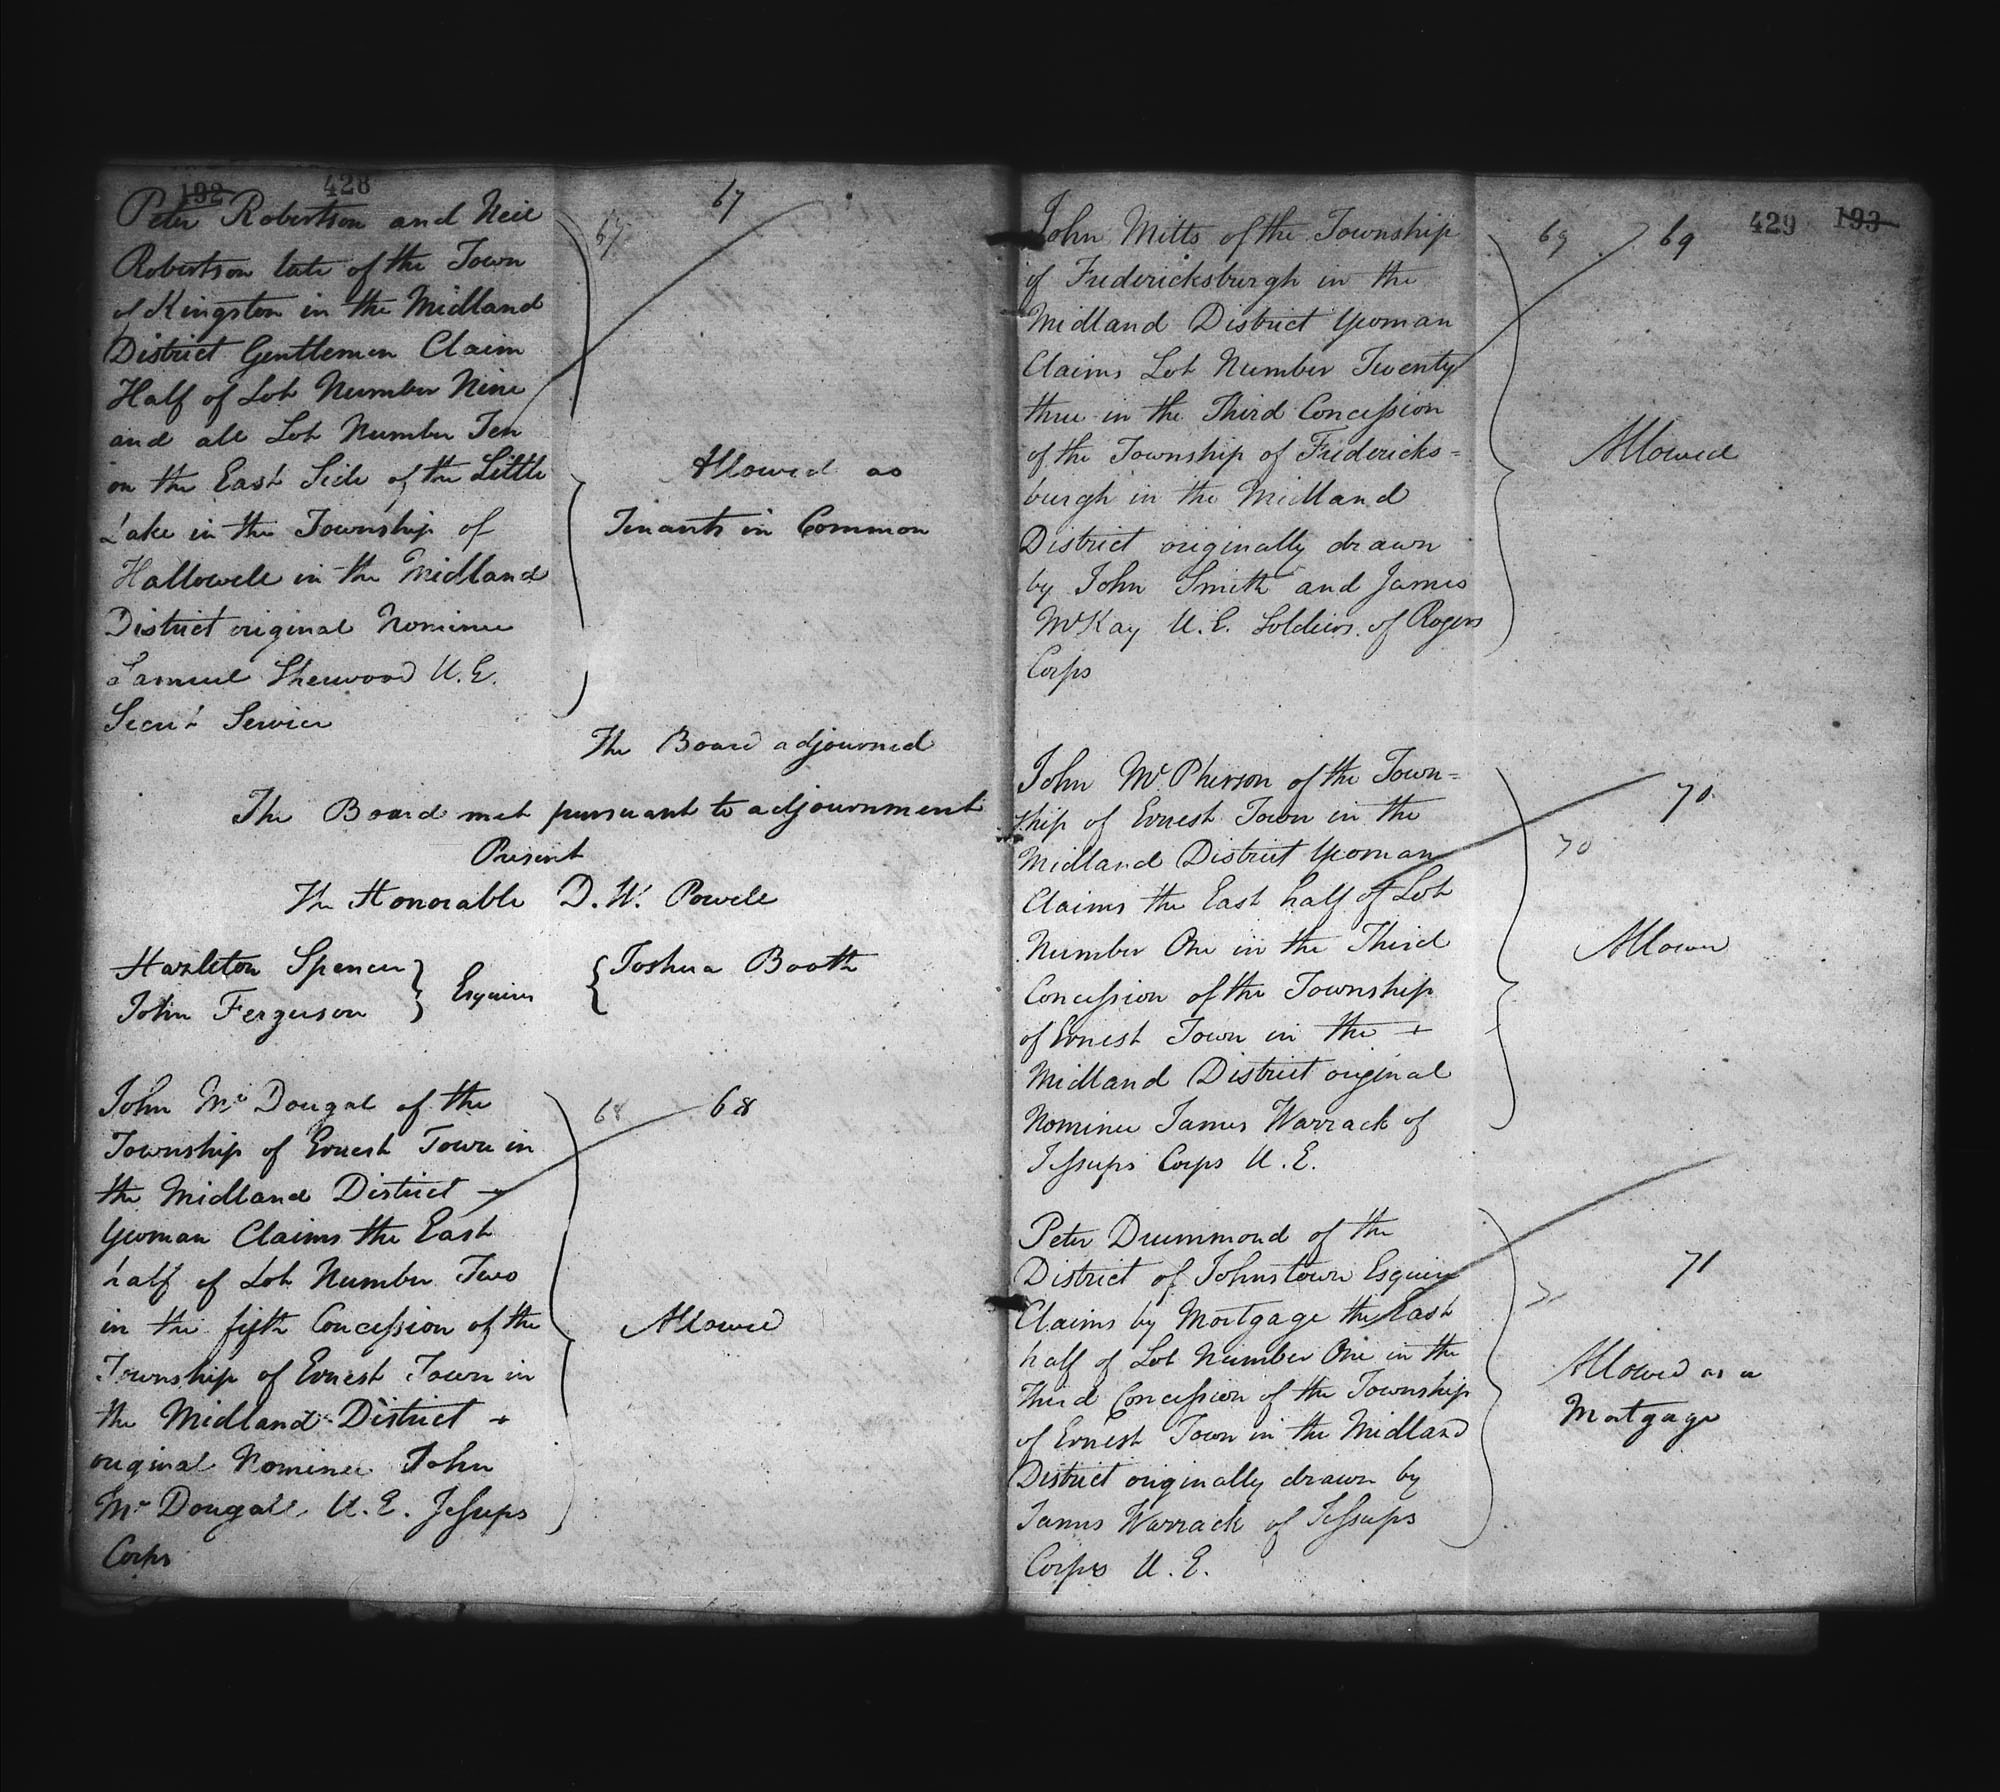 192 428
67
67
Peter Robertson and Neil
Robertson late of the Town
of Kingston in the Midland
District Gentlemen Claim
Half of Lot Number Nine
and all Lot Number Ten
on the East Side of the Little
Lake in the Township of
Hallowell in the Midland
District original Nominee
Samuel Sherwood U.E.
Secret Service
Allowed as
Tenants in Common
The Board adjourned
The Board met pursuant to adjournment
Present
The Honorable D. W. Powell
Hazleton Spencer
John Ferguson
} Esquires
{ Joshua Booth
68 68
John Mc Dougal of the
Township of Ernest Town in
the Midland District
Yeoman Claims the East
half of Lot Number Two
in the fifth Concession of the
Township of Ernest Town in
the Midland District
original Nominee John
Mc Dougall U. E. Jessups
Corps
Allowed
429 193
69 69
John Mitts of the Township
of Fredericksburgh in the
Midland District Yeoman
Claims Lot Number Twenty
three in the Third Concession
of the Township of Fredericks=
burgh in the Midland
District originally drawn
by John Smith and James
McKay U.E. Soldiers of Rogers
Corps
Allowed
70
70
John Mc Pherson of the Town=
ship of Ernest Town in the
Midland District Yeoman
Claims the East half of Lot
Number One in the Third
Concession of the Township
of Ernest Town in the
Midland District original
Nominee James Warrack of
Jessups Corps U. E.
Allowed
71
Peter Drummond of the
District of Johnstown Esquire
Claims by Mortgage the East
half of Lot Number One in the
Third Concession of the Township
of Ernest Town in the Midland
District originally drawn by
James Warrack of Jessups
Corps U. E.
Allowed as a
Mortgage